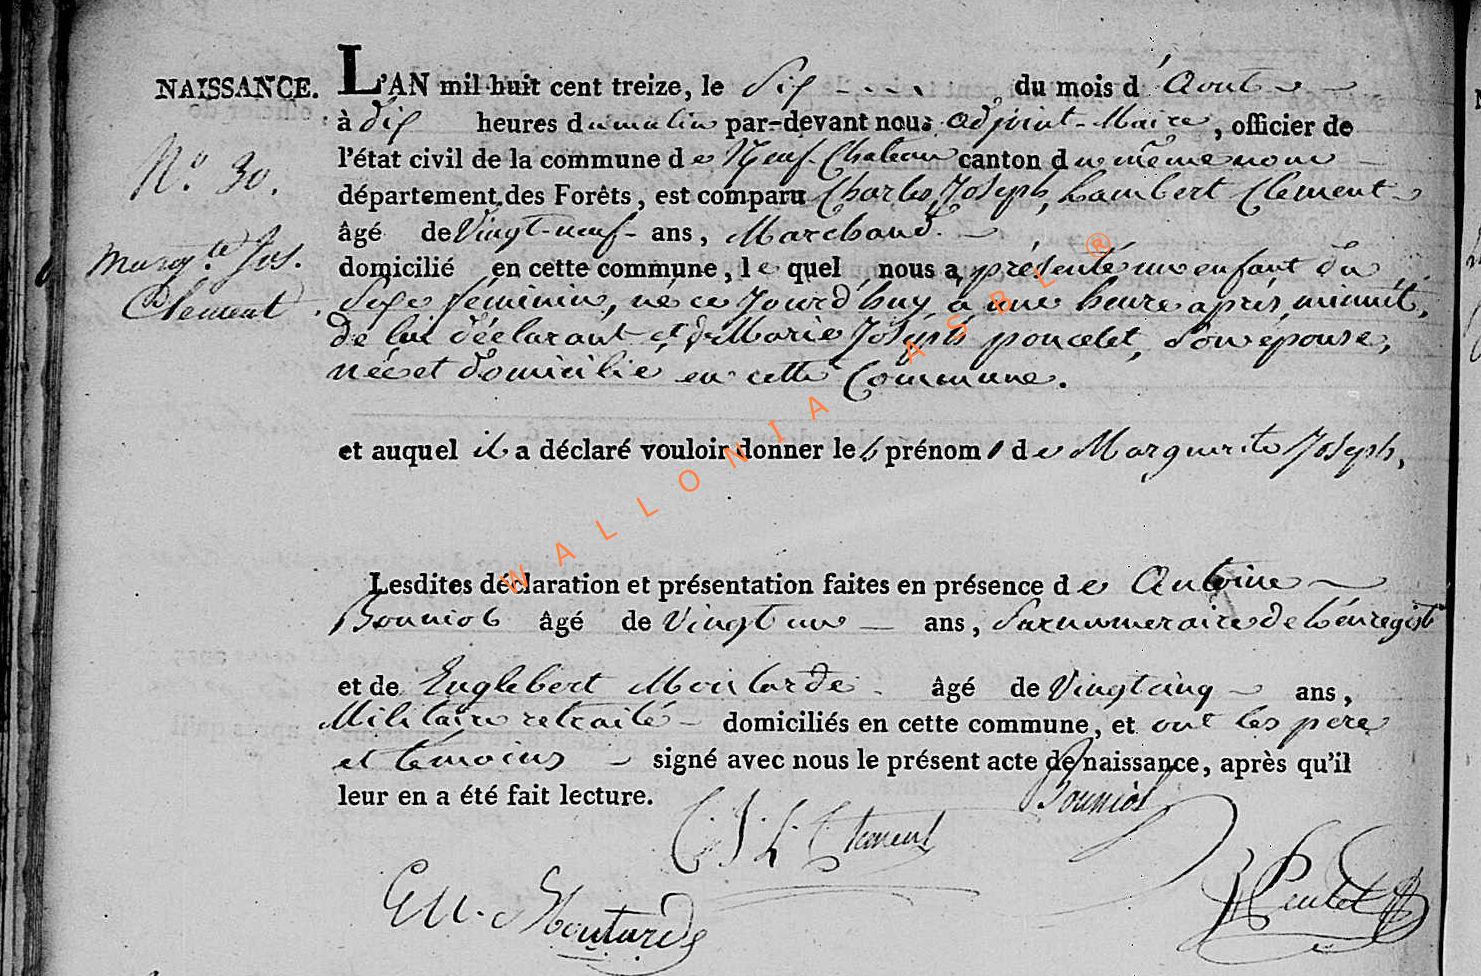 NAISSANCE.
N.° 30.
Marg.te Jos.
Clement.
L'AN mil huit cent treize, le Six du mois d'Aout
à dix heures du matin par-devant nous adjoint-Maire, officier de
l'état civil de la commune de Neuf-Chateau canton du même nom
département des Forêts, est comparu Charles, Joseph, Lambert Clement
âgé de Vingt-neuf ans, Marchand.
domicilié en cette commune, le quel nous a présenté un enfant du
Sexe féminin, né ce Jourd'huy à une heure après minuit,
de lui déclarant et de Marie Joseph poncelet, Son épouse,
née et domicilie en cette Commune.
et auquel il a déclaré vouloir donner les prénoms de Marguerite Joseph,
Lesdites déclaration et présentation faites en présence de Antoine
Bouniol âgé de Vingt un ans, Surnumeraire de l'énregist
et de Englebert Moutarde âgé de Vingt cinq ans,
Militaire retraité domiciliés en cette commune, et ont les père
et témoins signé avec nous le présent acte de naissance, après qu'il
leur en a été fait lecture.
Bouniol
C. J. L. Clement
E M. Moutarde
WALLONIA ASBL ®